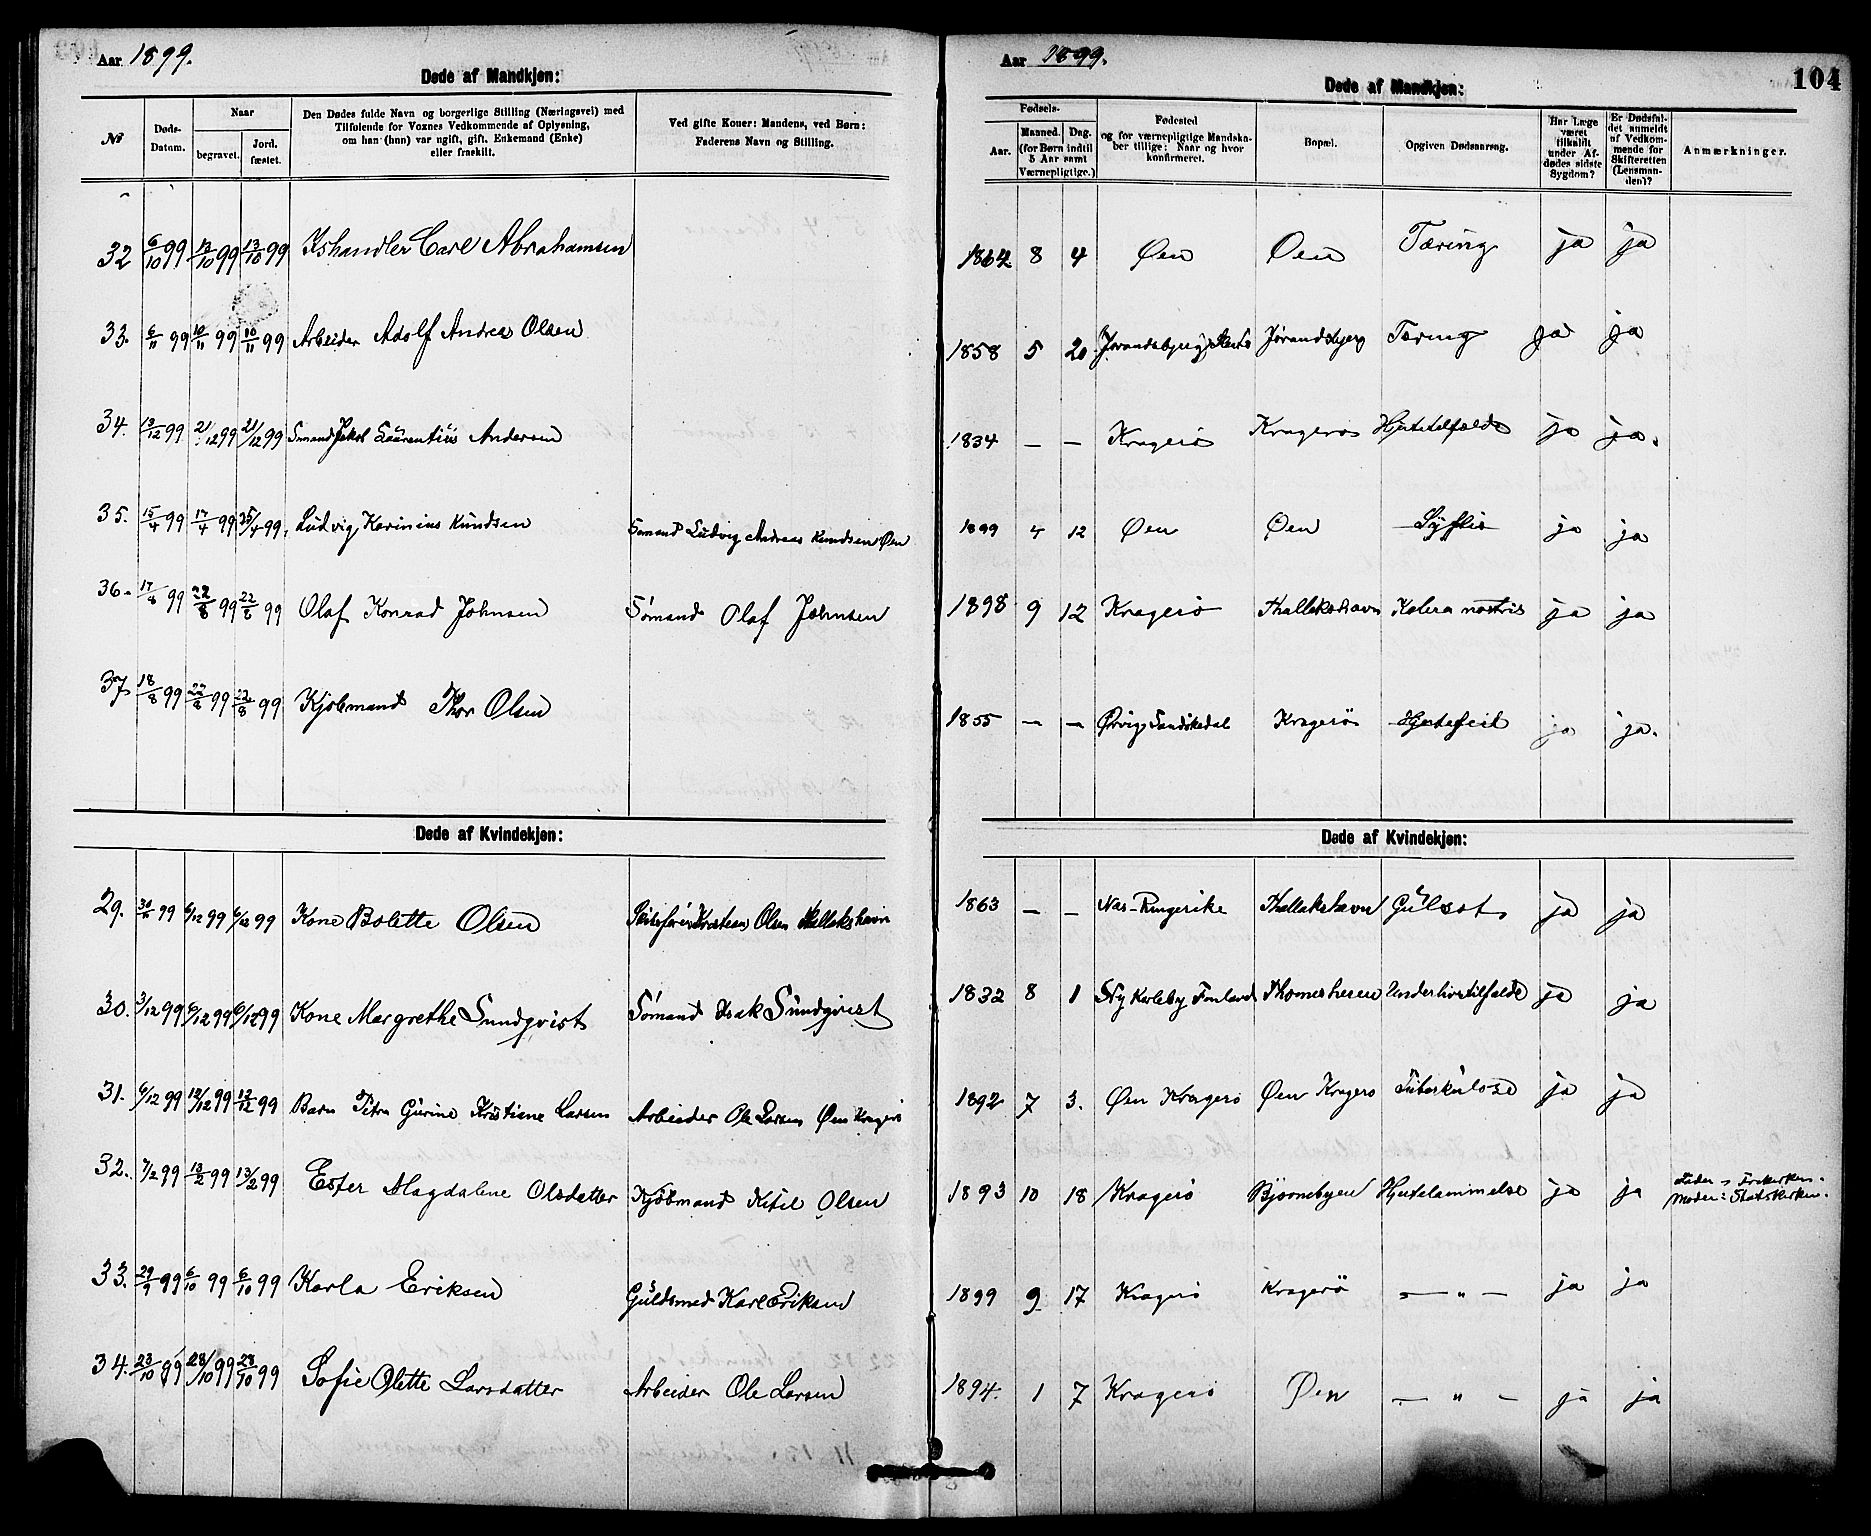 Aar 1899.
Døde af Mandkjøn:
№
Døds-Datum.
Naar
begravet.
Jord. fæstet.
Den Dødes fulde Navn og borgerlige Stilling (Næringsvei) med
Tilføiende for Voxnes Vedkommende af Oplysning,
om han (hun) var ugift, gift, Enkemand (Enke)
eller fraskilt.
Ved gifte Koner: Mandens, ved Børn:
Faderens Navn og Stilling.
32 6/10 99 13/10 99 13/10 99 Ishandler Carl Abrahamsen
33. 6/11 99 10/11 99 10/11 99 Arbeider Adolf Andreas Olsen
34. 13/12 99 21/12 99 21/12 99 Sømand Jakob Laurentius Andersen
35. 15/4 99 17/4 99 25/4 99. Ludvig Karinius Knudsen Sømand Ludvig Andreas Knudsen Øen
36. 17/8 99 22/8 99 22/8 99 Olaf Konrad Johnsen Sømand Olaf Johnsen
37 18/8 99 22/8 99 22/8 99 Kjøbmand Thor Olsen
Døde af Kvindekjøn:
29. 30/11 99 6/12 99 6/12 99 Kone Bolette Olsen Olsen Thallakshavn
30. 3/12 99 6/12 99 6/12 99 Kone Margrethe Sundqvist Sømand Isak Sundqvist
31. 6/12 99 12/12 99 12/12 99 Barn Petra Gurine Kristiane Larsen Arbeider Ole Larsen Øen Kragerø
32. 7/2 99 13/2 99 13/2 99 Ester Magdalene Olsdatter Kjøbmand Kitil Olsen
33. 29/9 99 6/10 99 6/10 99 Karla Eriksen Guldsmed Karl Eriksen
34. 23/10 99 28/10 99 28/10 99 Sofie Olette Larsdatter Arbeider Ole Larsen
Aar 1899.
104
Døde af Mandkjøn:
Fødsels-
Aar.
Maaned. Dag.
(for Børn indtil
5 Aar samt
Værnepligtige.)
Fødested
og for værnepligtige Mandska-
ber tillige: Naar og hvor
konfirmeret.
Bopæl.
Opgiven Dødsaarsag.
Har Læge
været
tilkaldt
under Af-
dødes sidste
Sygdom?
Er Dødsfal-
det anmeldt
af Vedkom-
mende for
Skifteretten
(Lensman-
den)?
Anmærkninger.
1864 8 4 Øen Øen Tæring ja ja
1858 5 20 Jørandsbjerg Tæring ja ja
1834 — — Kragerø Kragerø Hjertetilfælde ja ja.
1899 4 12 Øen Øen Syfilis ja ja
1898 9 12 Kragerø Thallakshavn Kolera nostris ja ja
1855 — — Ørvig, Sandøkedal Kragerø Hjertefeil ja ja.
Døde af Kvindekjøn:
1863 — — Næs-Ringerike Thallakshavn Gulsot ja ja
1832 8 1 Ny Karleby Finland Thomesheien Underlivstilfælde ja ja
1892 7 3. Øen Kragerø Øen Kragerø Tuberkulose ja ja
1893 10 18 Kragerø Bjørnebyen Hjertelammelse ja ja Fader: Frikirken. Moder: Statskirken.
1899 9 17 Kragerø Kragerø — " — ja ja
1894. 1 7 Kragerø Øen — " — ja ja